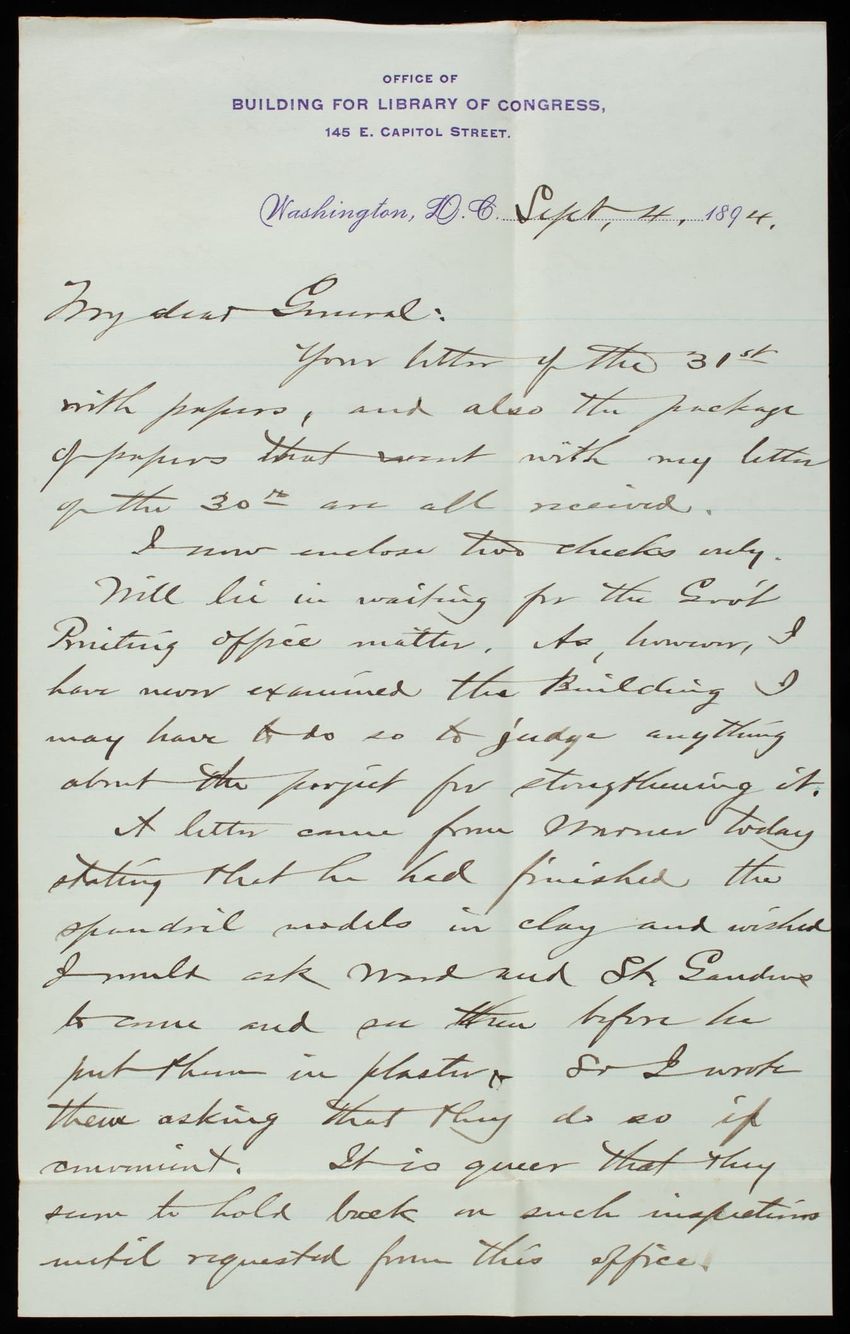 OFFICE OF
BUILDING FOR LIBRARY OF CONGRESS,
145 E. CAPITOL STREET.
Washington, D.C. Sept, 4, 1894.
My dear General:
Your letter of the 31st
with papers, and also the package
of papers that went with my letter
of the 30th are all received.
I now enclose two checks only.
Will lie in waiting for the Gov't
Printing office matter. As, however, I
have never examined the Building I
may have to do so to judge anything
about the project for strengthening it.
A letter came from Warner today
stating that he had finished the
spandril models in clay and wished
I would ask Ward and St. Gaudens
to come and see them before he
put them in plaster. So I wrote
them asking that they do so if
convenient. It is queer that they
seem to hold back on such inspections
until requested from this office.